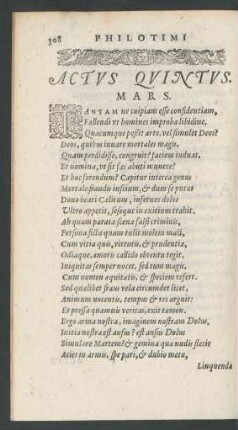 308 PHILOTIMI
ACTVS QVINTVS.
MARS.
TANTAM ne cuipiam esse confidentiam,
Fallendi vt homines improba libidine,
Quacumque possit arte, vel simulet Deos?
Deos, quibus iuuare mortales magis,
Quam perdidisse, congruit? faciem induat,
Et nomina, vt sit fas abuti munere?
Et hoc ferendum? Capitur interea genus
Mortale fraudis inscium, & dum se putat
Dono beari Cælitum, inferues dolos
Vltro appetit, seseque in exitium trahit.
Ab quam parata scena falsi criminis,
Persona ficta quam tulit molem mali,
Cum vitia quis, virtutis, & prudentia,
Odiaque amoris callido obtentu tegit.
Iniquitas semper nocet, sed tum magis,
Cum nomen æquitatis, & speciem refert.
Sed qualibet fraus vela circumdet licet,
Animum nocentis, tempus & res arguit:
Et pressa quamuis veritas, exit tamen.
Ergo arma nostra, imaginem nostram Dolus,
Initia nostra est ausus? est ausus Dolus
Simulare Martem? & gemina qua nudis stetit
Acies in armis, spe pari, & dubio metu,
Linquenda